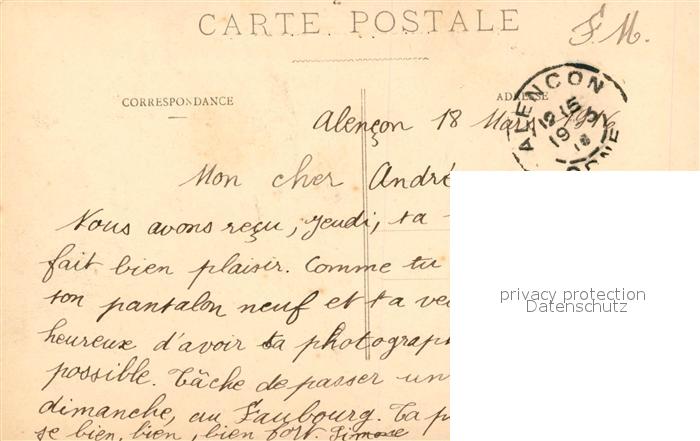 CARTE POSTALE
F M.
CORRESPONDANCE
ADRESSE
ALENÇON
ORNE
Alençon 18 Mars 1916
Mon cher André
Nous avons reçu, jeudi, ta
fait bien plaisir. Comme tu
ton pantalon neuf et ta ve
heureux d'avoir ta photograp
possible. Tâche de passer un
dimanche, au Faubourg. Ta p
se bien, bien, bien fort. Simone
privacy protection
Datenschutz